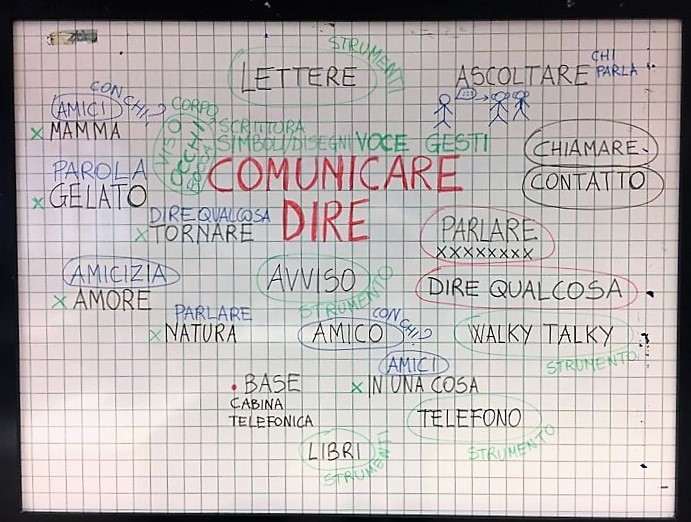 STRUMENTI
LETTERE
ASCOLTARE CHI PARLA
AMICI CON CHI?
MAMMA
CORPO
VISO
OCCHI
BOCCA
SCRITTURA
SIMBOLI/DISEGNI VOCE GESTI
CHIAMARE
CONTATTO
PAROLA
GELATO
COMUNICARE
DIRE
DIRE QUALCOSA
TORNARE
PARLARE
XXXXXXXX
AMICIZIA
AMORE
AVVISO
STRUMENTO
DIRE QUALCOSA
PARLARE
NATURA
AMICO CON CHI?
WALKY TALKY
STRUMENTO
AMICI
IN UNA COSA
BASE
CABINA
TELEFONICA
TELEFONO
STRUMENTO
LIBRI
STRUMENTI